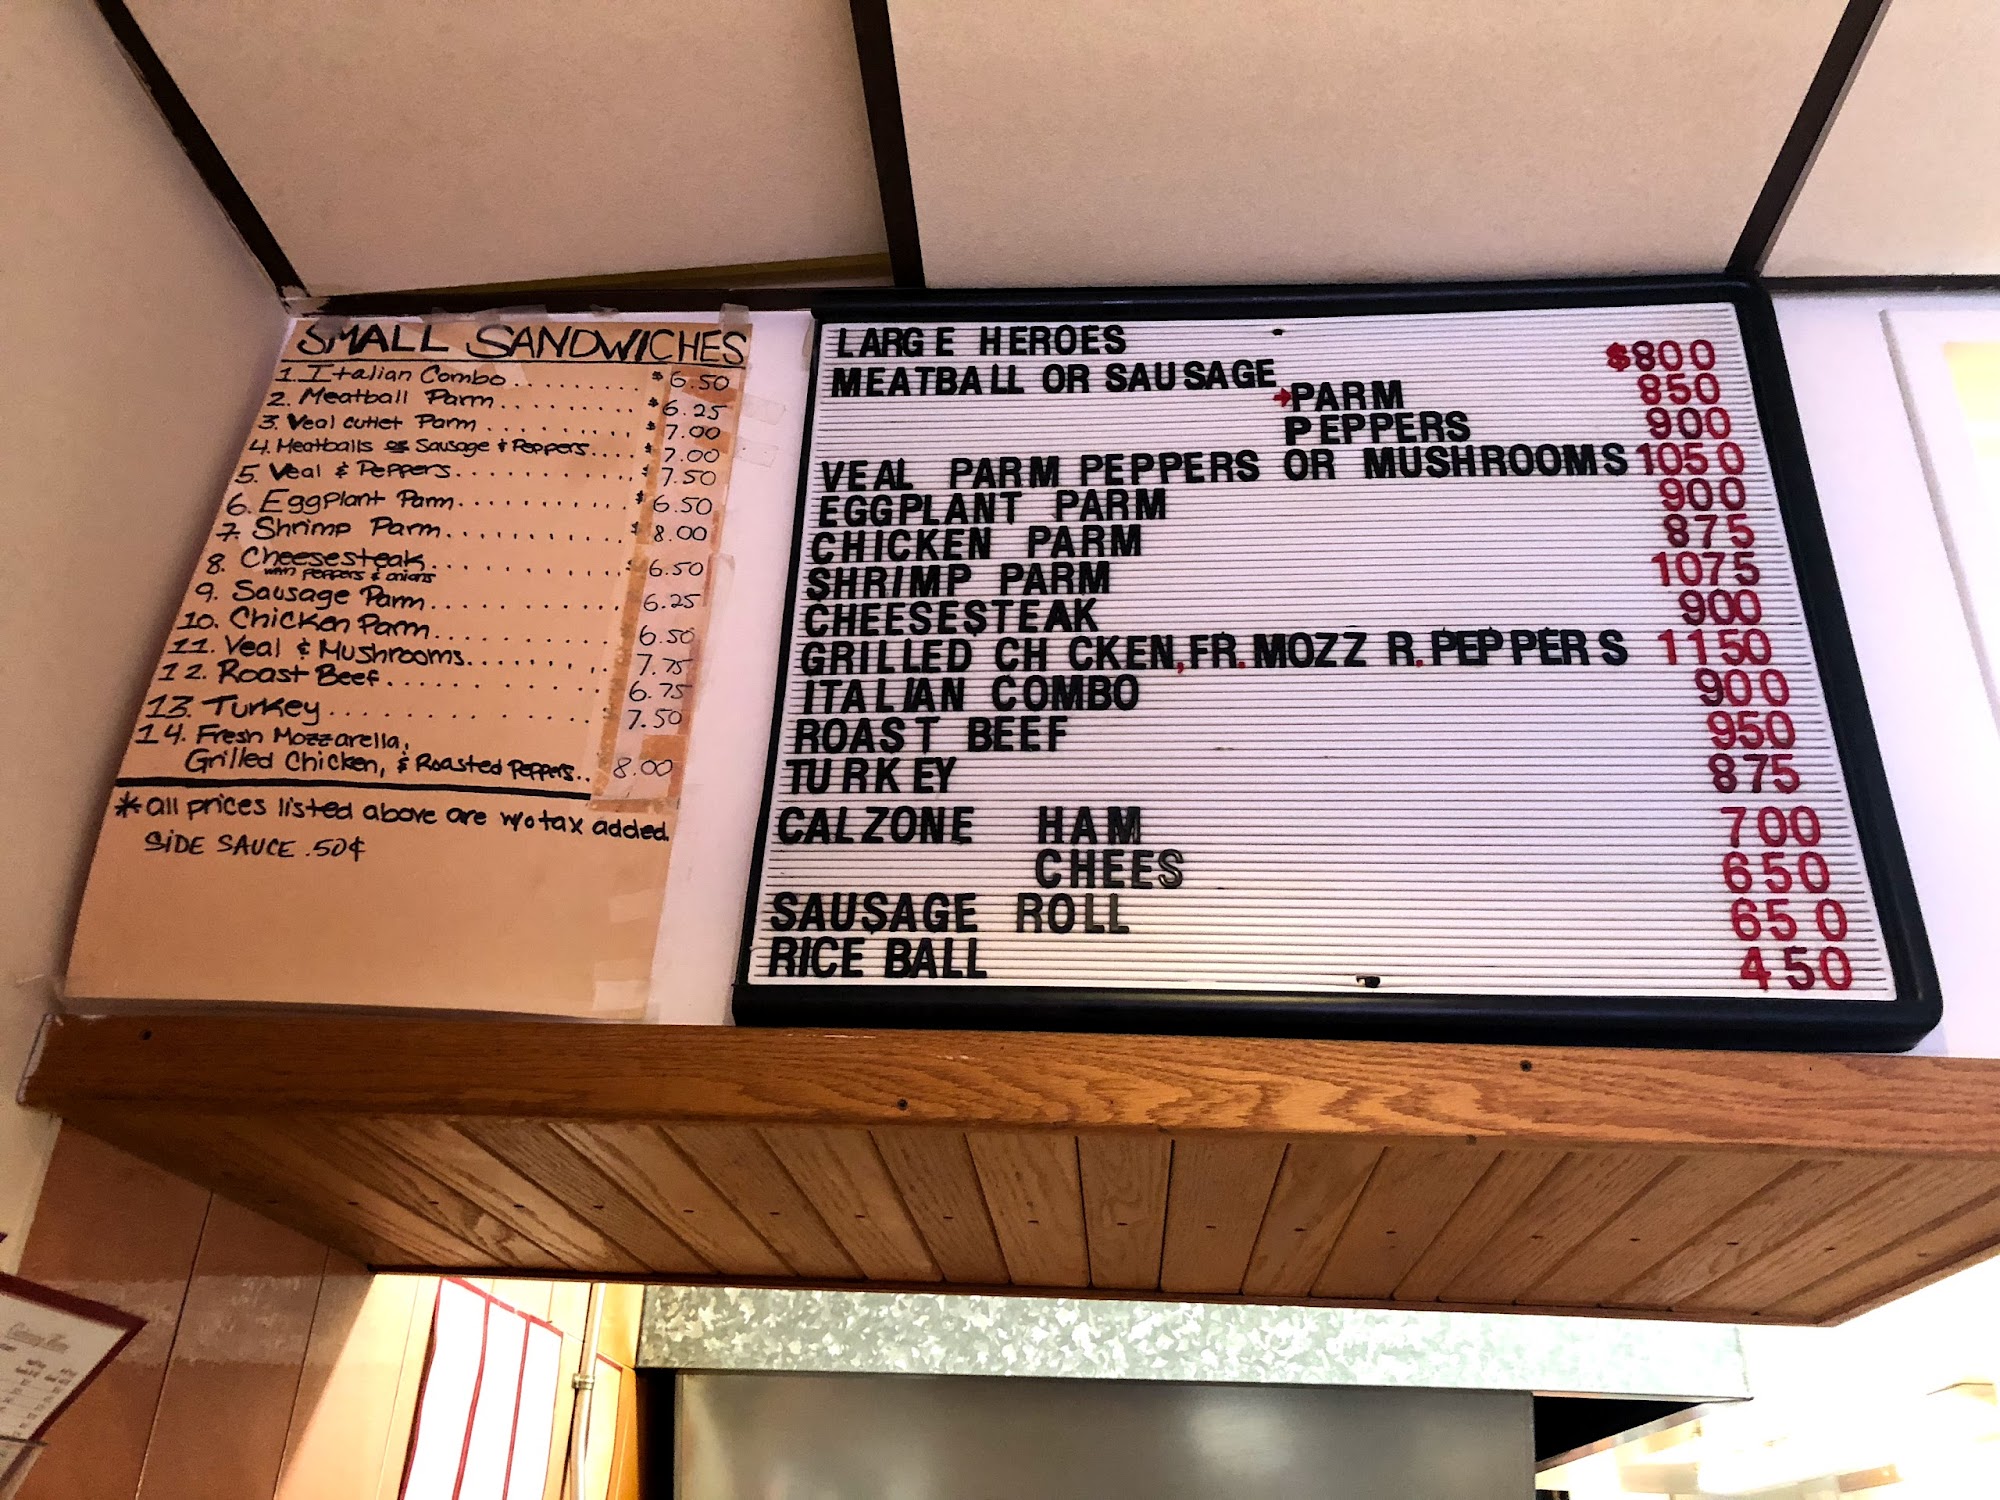 SMALL SANDWICHES
1. Italian Combo.......... $6.50
2. Meatball Parm.......... $6.25
3. Veal cutlet Parm.......... $7.00
4. Meatballs or Sausage & Peppers.... $7.00
5. Veal & Peppers........... $7.50
6. Eggplant Parm........... $6.50
7. Shrimp Parm........... $8.00
8. Cheesesteak........... $6.50
with peppers & onions
9. Sausage Parm........... 6.25
10. Chicken Parm........... 6.50
11. Veal & Mushrooms........ 7.75
12. Roast Beef........... 6.75
13. Turkey............... 7.50
14. Fresh Mozzarella,
Grilled Chicken, & Roasted Peppers.. 8.00
*all prices listed above are w/o tax added.
SIDE SAUCE .50¢
LARGE HEROES
MEATBALL OR SAUSAGE $800
PARM 850
PEPPERS 900
VEAL PARM PEPPERS OR MUSHROOMS 1050
EGGPLANT PARM 900
CHICKEN PARM 875
SHRIMP PARM 1075
CHEESESTEAK 900
GRILLED CH CKEN,FR.MOZZ R.PEPPERS 1150
ITALIAN COMBO 900
ROAST BEEF 950
TURKEY 875
CALZONE HAM 700
CHEES 650
SAUSAGE ROLL 650
RICE BALL 450